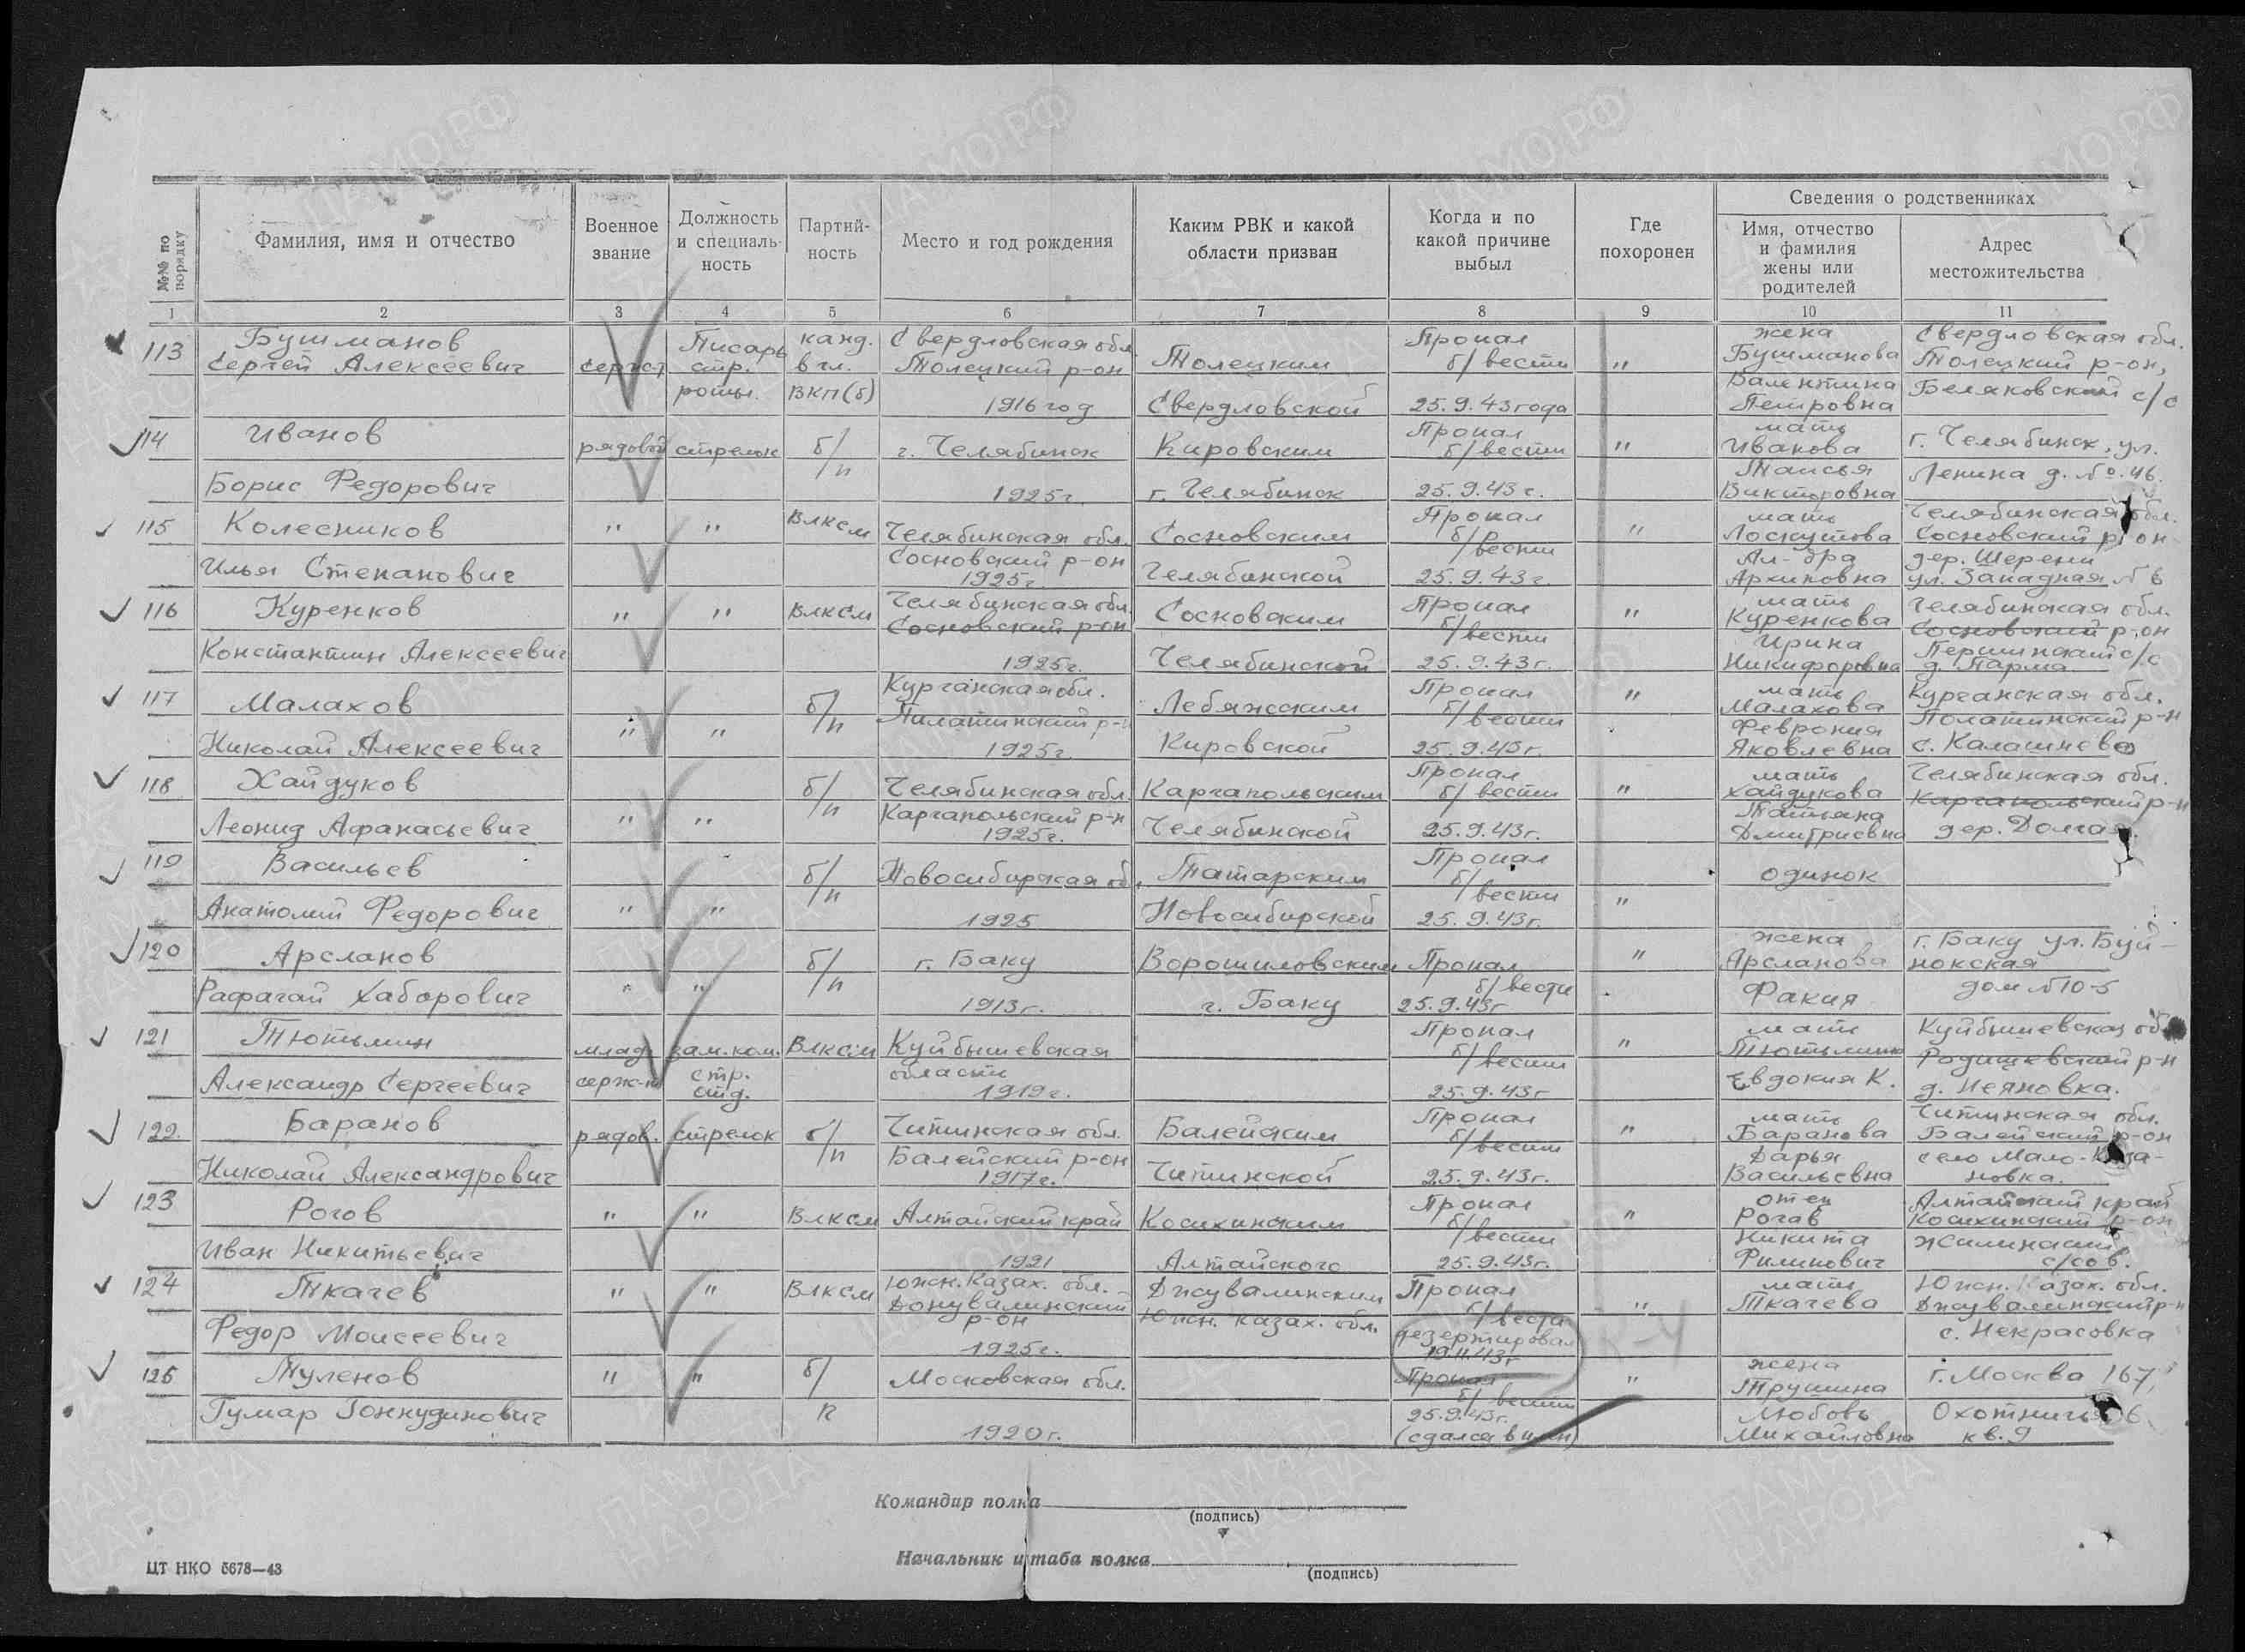 №№ по порядку
Фамилия, имя и отчество
Военное звание
Должность и специаль-ность
Партий-ность
Место и год рождения
Каким РВК и какой области призван
Когда и по какой причине выбыл
Где похоронен
Сведения о родственниках
Имя, отчество и фамилия жены или родителей
Адрес местожительства
1 2 3 4 5 6 7 8 9 10 11
113 Бушманов Сергей Алексеевич
Писарь стр. роты.
канд. в чл. ВКП(б)
Свердловская обл. Толецкий р-он 1916 год
Толецким Свердловской
Пропал б/вести 25.9.43 года
"
жена Бушманова Валентина Петровна
Свердловская обл. Толецкий р-он, Беляковский с/с
114 Иванов Борис Федорович
рядовой
стрелок
б/п
г. Челябинск 1925г.
Кировским г. Челябинск
Пропал б/вести 25.9.43 г.
"
мать Иванова Таисья Викторовна
г. Челябинск, ул. Ленина д. № 46.
115 Колесников Илья Степанович
"
"
ВЛКСМ
Челябинская обл. Сосновский р-он 1925г.
Сосновским Челябинской
Пропал б/вести 25.9.43г.
"
мать Лоскутова Ал-дра Архиповна
Челябинская обл. Сосновский р-он дер. Шерени ул. Западная № 6
116 Куренков Константин Алексеевич
"
"
ВЛКСМ
Челябинская обл. Сосновский р-он 1925г.
Сосновским Челябинской
Пропал б/вести 25.9.43г.
"
мать Куренкова Ирина Никифоровна
Челябинская обл. Сосновский р-он Першинский с/с д. Парма
117 Малахов Николай Алексеевич
"
"
б/п
Курганская обл. Пилатинский р-н 1925г.
Лебяжским Кировской
Пропал б/вести 25.9.43г.
"
мать Малахова Феврония Яковлевна
Курганская обл. Полатинский р-н с. Калашнево
118 Хайдуков Леонид Афанасьевич
"
"
б/п
Челябинская обл. Каргапольский р-н 1925г.
Каргапольским Челябинской
Пропал б/вести 25.9.43г.
"
мать Хайдукова Татьяна Дмитриевна
Челябинская обл. Каргапольский р-н дер. Долгая.
119 Васильев Анатолий Федорович
"
"
б/п
Новосибирская об. 1925
Татарским Новосибирской
Пропал б/вести 25.9.43г.
"
одинок
120 Арсланов Рафагай Хаборович
"
"
б/п
г. Баку 1913г.
Ворошиловским г. Баку
Пропал б/вести 25.9.43г
"
жена Арсланова Факия
г. Баку ул. Буй-нокская дом № 10-5
121 Тютьмин Александр Сергеевич
млад. серж-т
зам.ком. стр. отд.
ВЛКСМ
Куйбышевская области 1919г.
Пропал б/вести 25.9.43г
"
мать Евдокия К.
Куйбышевская об Родищевский р-н д. Неяновка.
122. Баранов Николай Александрович
рядов.
стрелок
б/п
Читинская обл. Балейский р-он 1917г.
Балейским Читинской
Пропал б/вести 25.9.43г.
"
мать Баранова Дарья Васильевна
Читинская обл. Балейский р-он село Мало-новка.
123 Рогов Иван Никитьевич
"
"
ВЛКСМ
Алтайский край 1921
Косихинским Алтайского
Пропал б/вести 25.9.43г.
"
отец Рогав Никита Филипович
Алтайский край Косихинский р-он Жилинский с/сов.
124 Ткачев Федор Моисеевич
"
"
ВЛКСМ
Южн. Казах. обл. Донувалинский р-он 1925г.
Джувалинским Южн. Казах. обл.
Пропал б/вести дезертировал 19.11.43г
"
мать Ткачева
Южн. Казах. обл. Джувалинский р-н с. Некрасовка
125 Туленов Гумар Гоннудинович
"
"
б/п
Московская обл. 1920г.
Пропал б/вести 25.9.43г. (сдался в плен)
"
жена Трушина Любовь Михайловна
г. Москва 167, кв. 9
Командир полка
(подпись)
Начальник штаба полка
(подпись)
ЦТ НКО 5678—43
ПАМЯТЬ НАРОДА
ПАМО.РФ